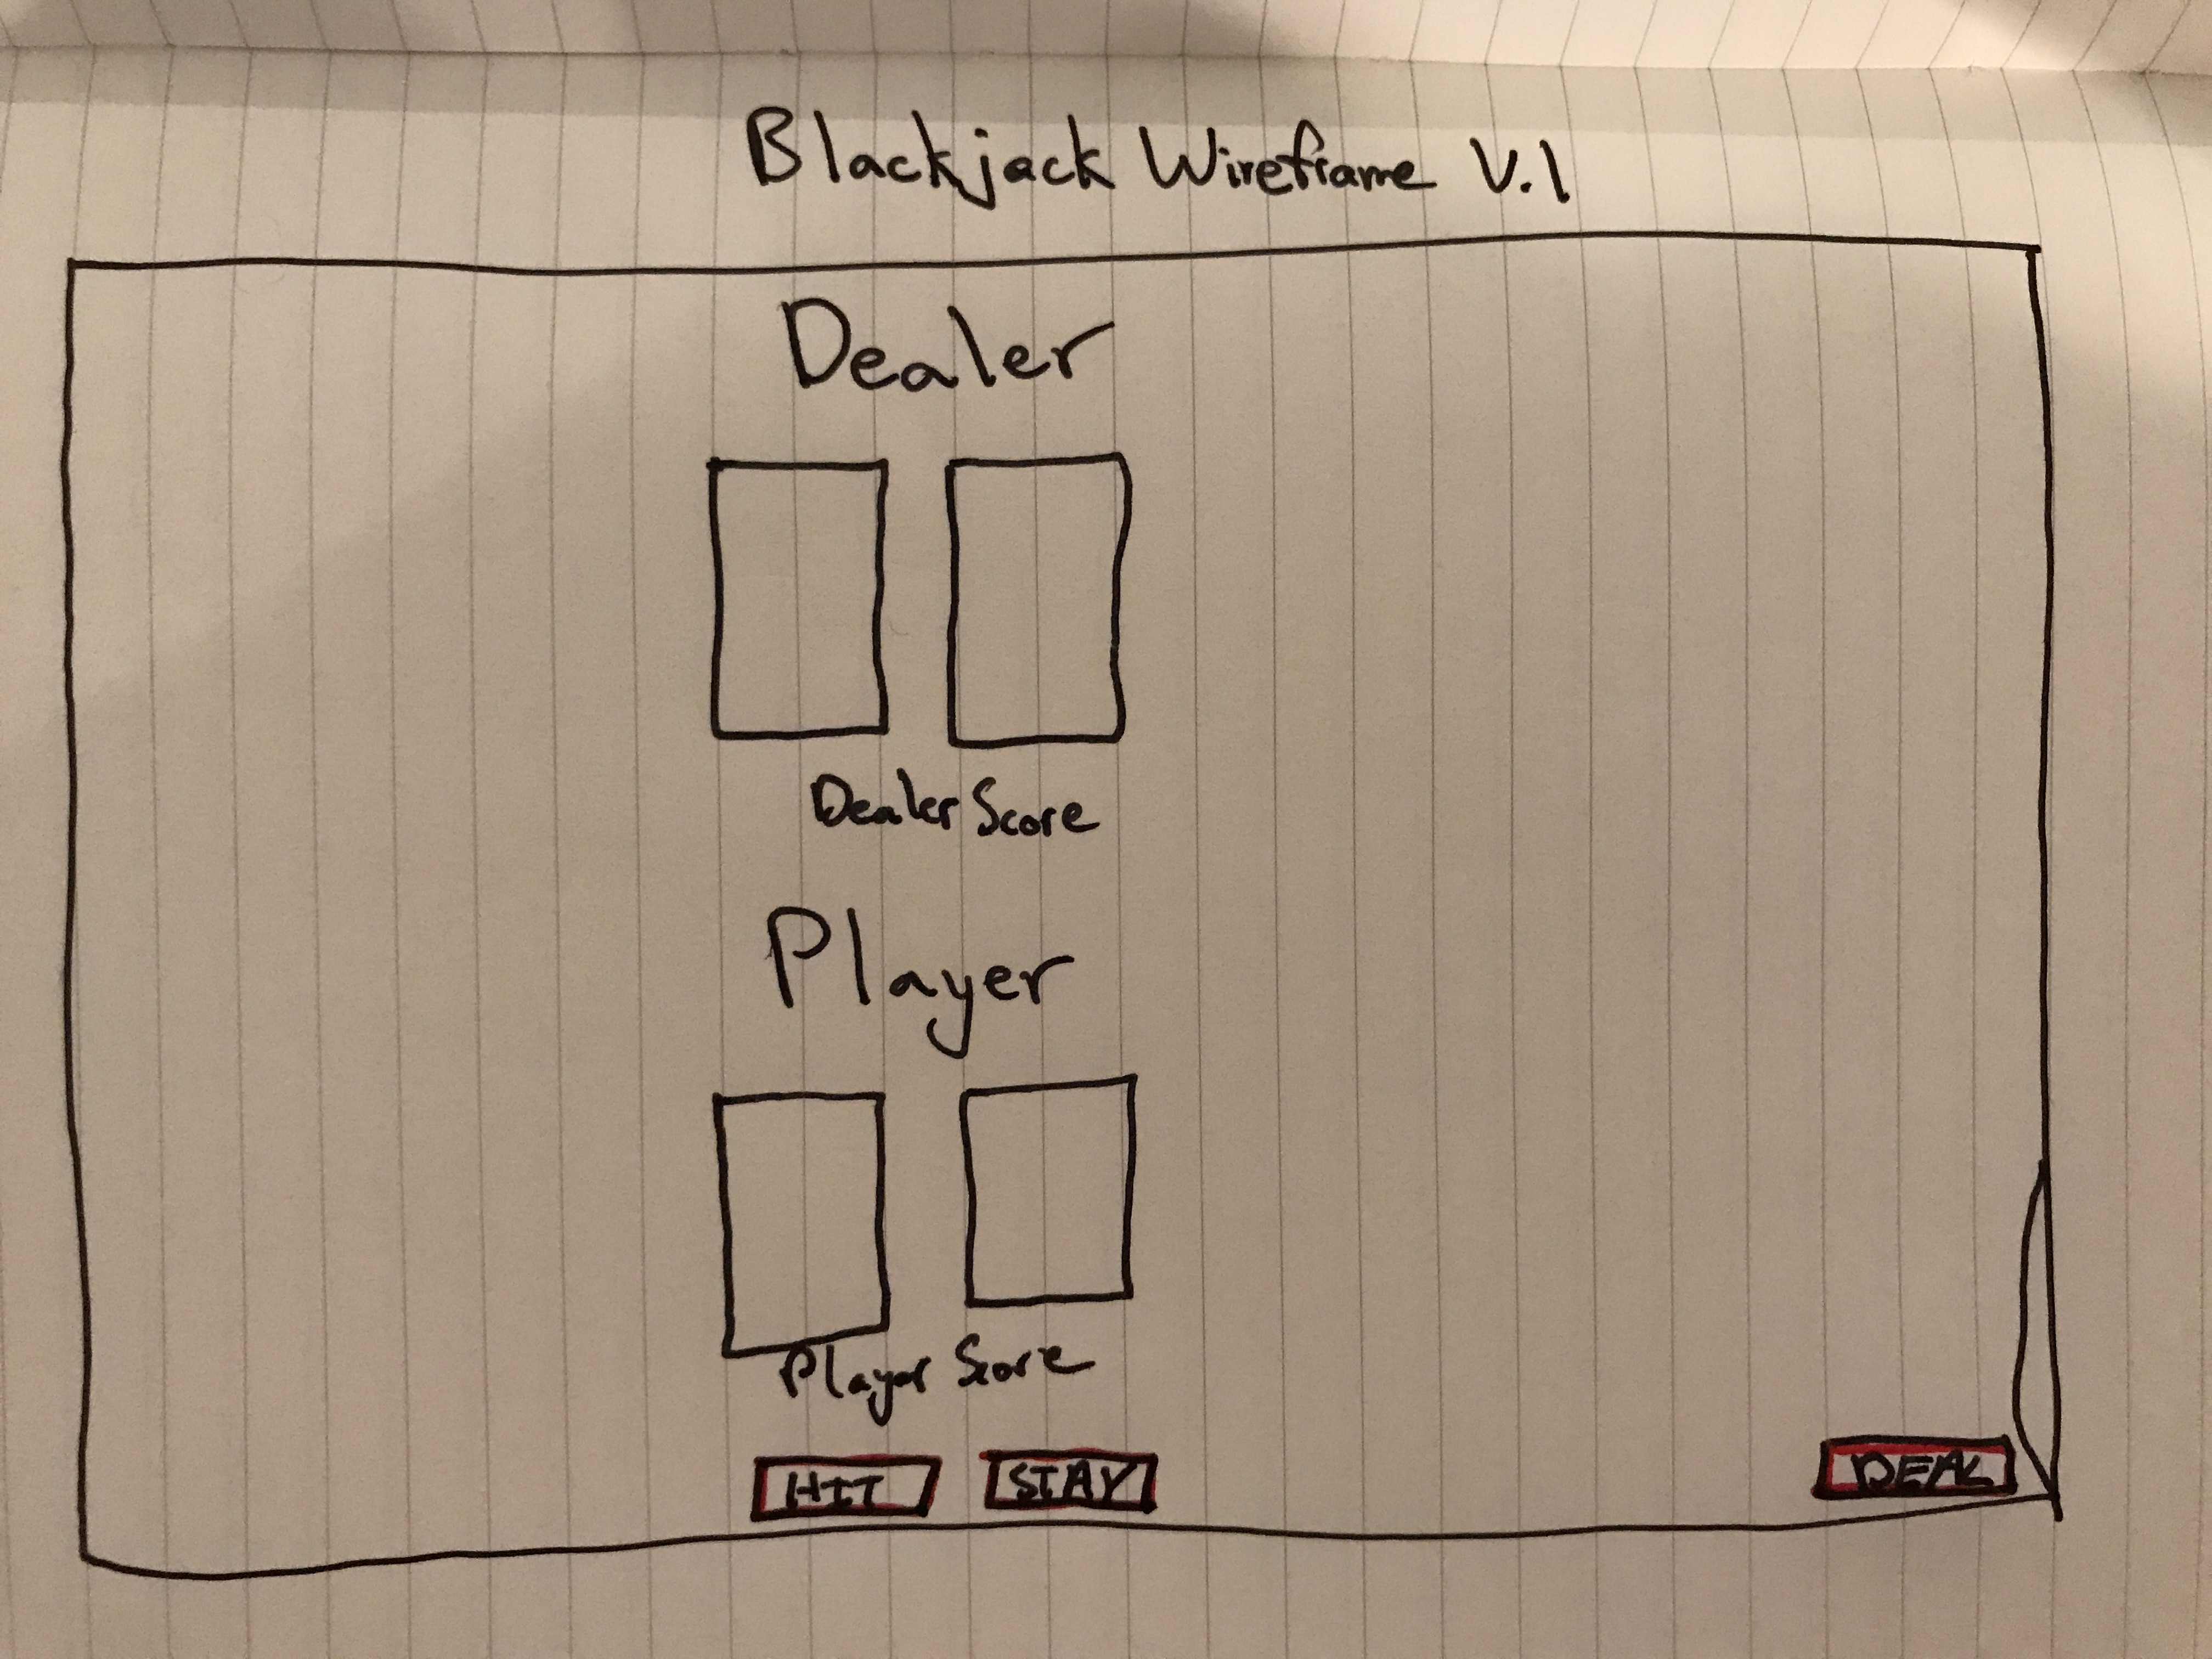 Blackjack Wireframe V.1
Dealer
Dealer Score
Player
Player Score
HIT STAY DEAL